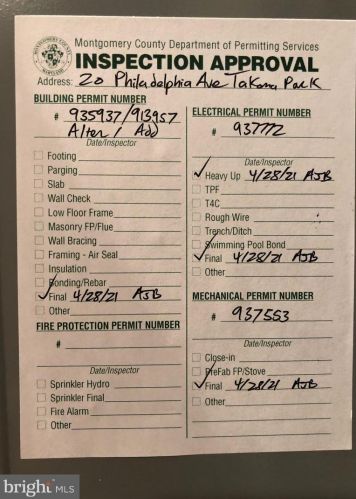 Montgomery County Department of Permitting Services
INSPECTION APPROVAL
Address: 20 Philadelphia Ave Takoma Park
BUILDING PERMIT NUMBER
# 935937/913957
Alter / Add
Date/Inspector
Footing
Parging
Slab
Wall Check
Low Floor Frame
Masonry FP/Flue
Wall Bracing
Framing - Air Seal
Insulation
Bonding/Rebar
Final 4/28/21 AJB
Other
FIRE PROTECTION PERMIT NUMBER
#
Date/Inspector
Sprinkler Hydro
Sprinkler Final
Fire Alarm
Other
ELECTRICAL PERMIT NUMBER
# 937772
Date/Inspector
Heavy Up 4/28/21 AJB
TPF
T4C
Rough Wire
Trench/Ditch
Swimming Pool Bond
Final 4/28/21 AJB
Other
MECHANICAL PERMIT NUMBER
# 937553
Date/Inspector
Close-in
PreFab FP/Stove
Final 4/28/21 AJB
Other
bright MLS